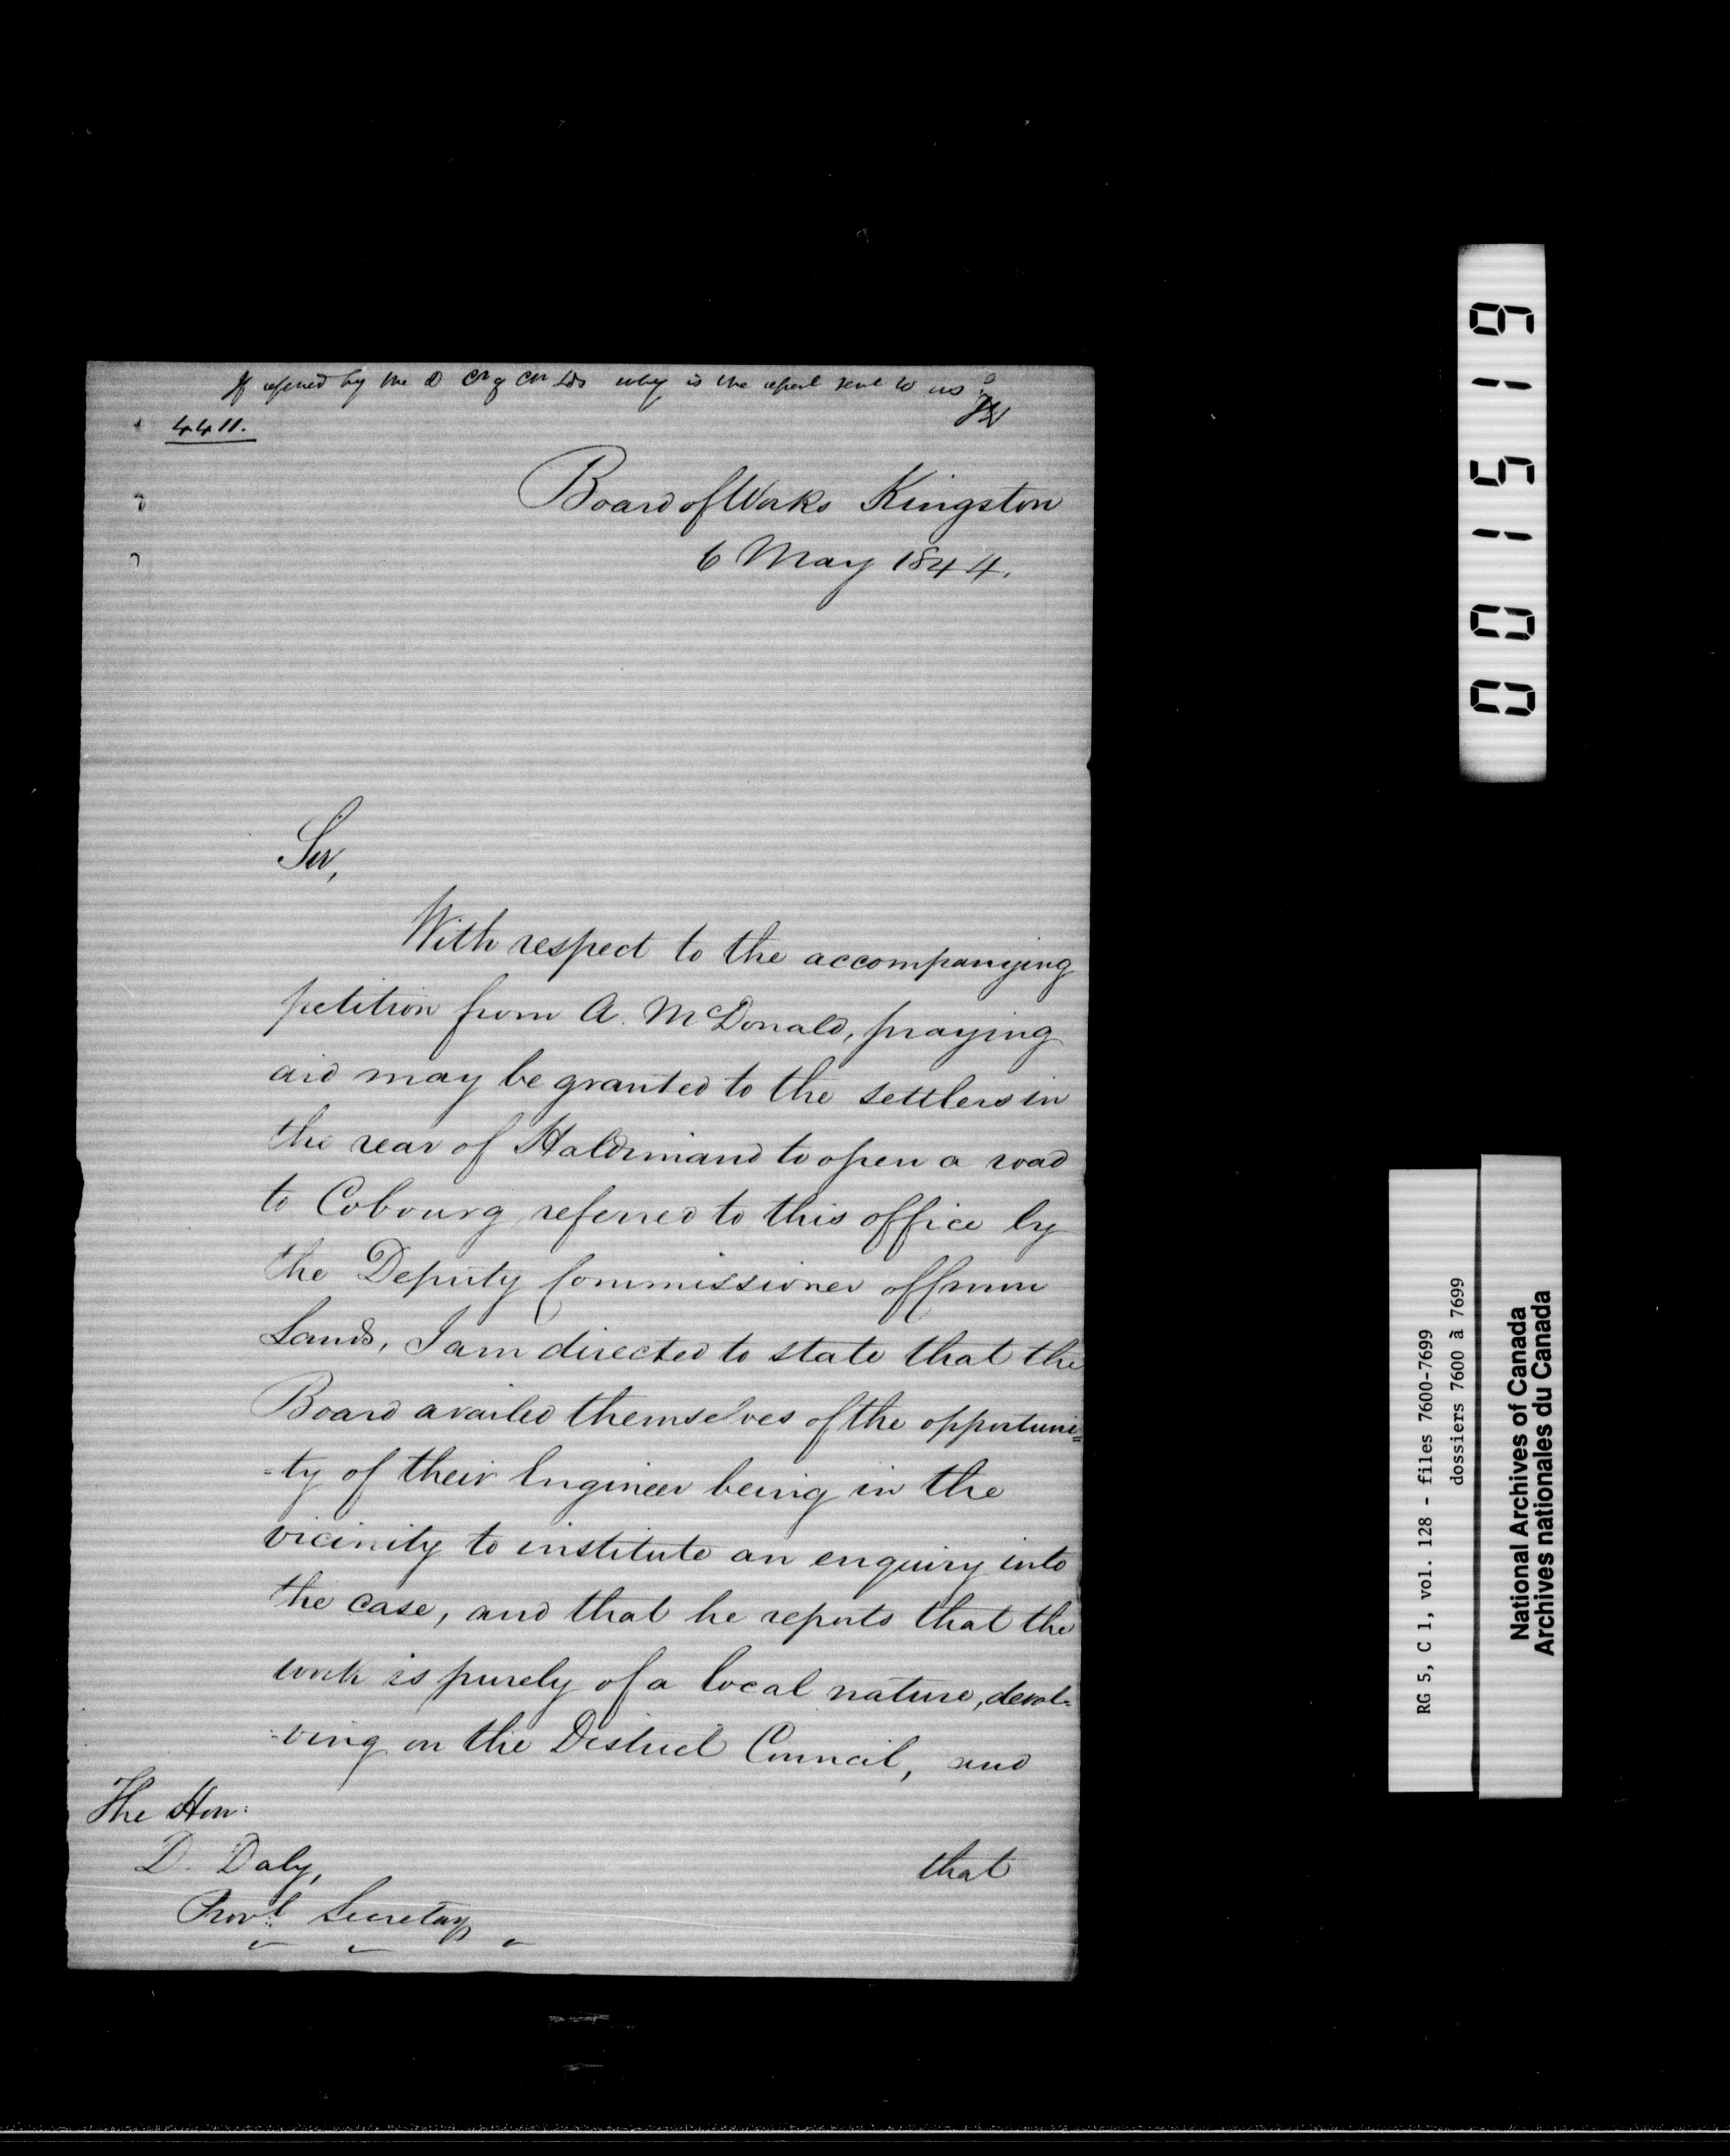 If referred by the D Cr of Cn Lds why is the report sent to us?
4411.
Board of Works Kingston
6 May 1844.
Sir,
With respect to the accompanying
petition from A. McDonald, praying
aid may be granted to the settlers in
the rear of Haldimand to open a road
to Cobourg, referred to this office by
the Deputy Commissioner of Crown
Lands, I am directed to state that the
Board availed themselves of the opportuni=
=ty of their Engineer being in the
vicinity to institute an enquiry into
the case, and that he reports that the
work is purely of a local nature, devol=
=ving on the District Council, and
that
The Hon:
D. Daly,
Provl. Secretary
001519
RG 5, C 1, vol. 128 - files 7600-7699
dossiers 7600 à 7699
National Archives of Canada
Archives nationales du Canada